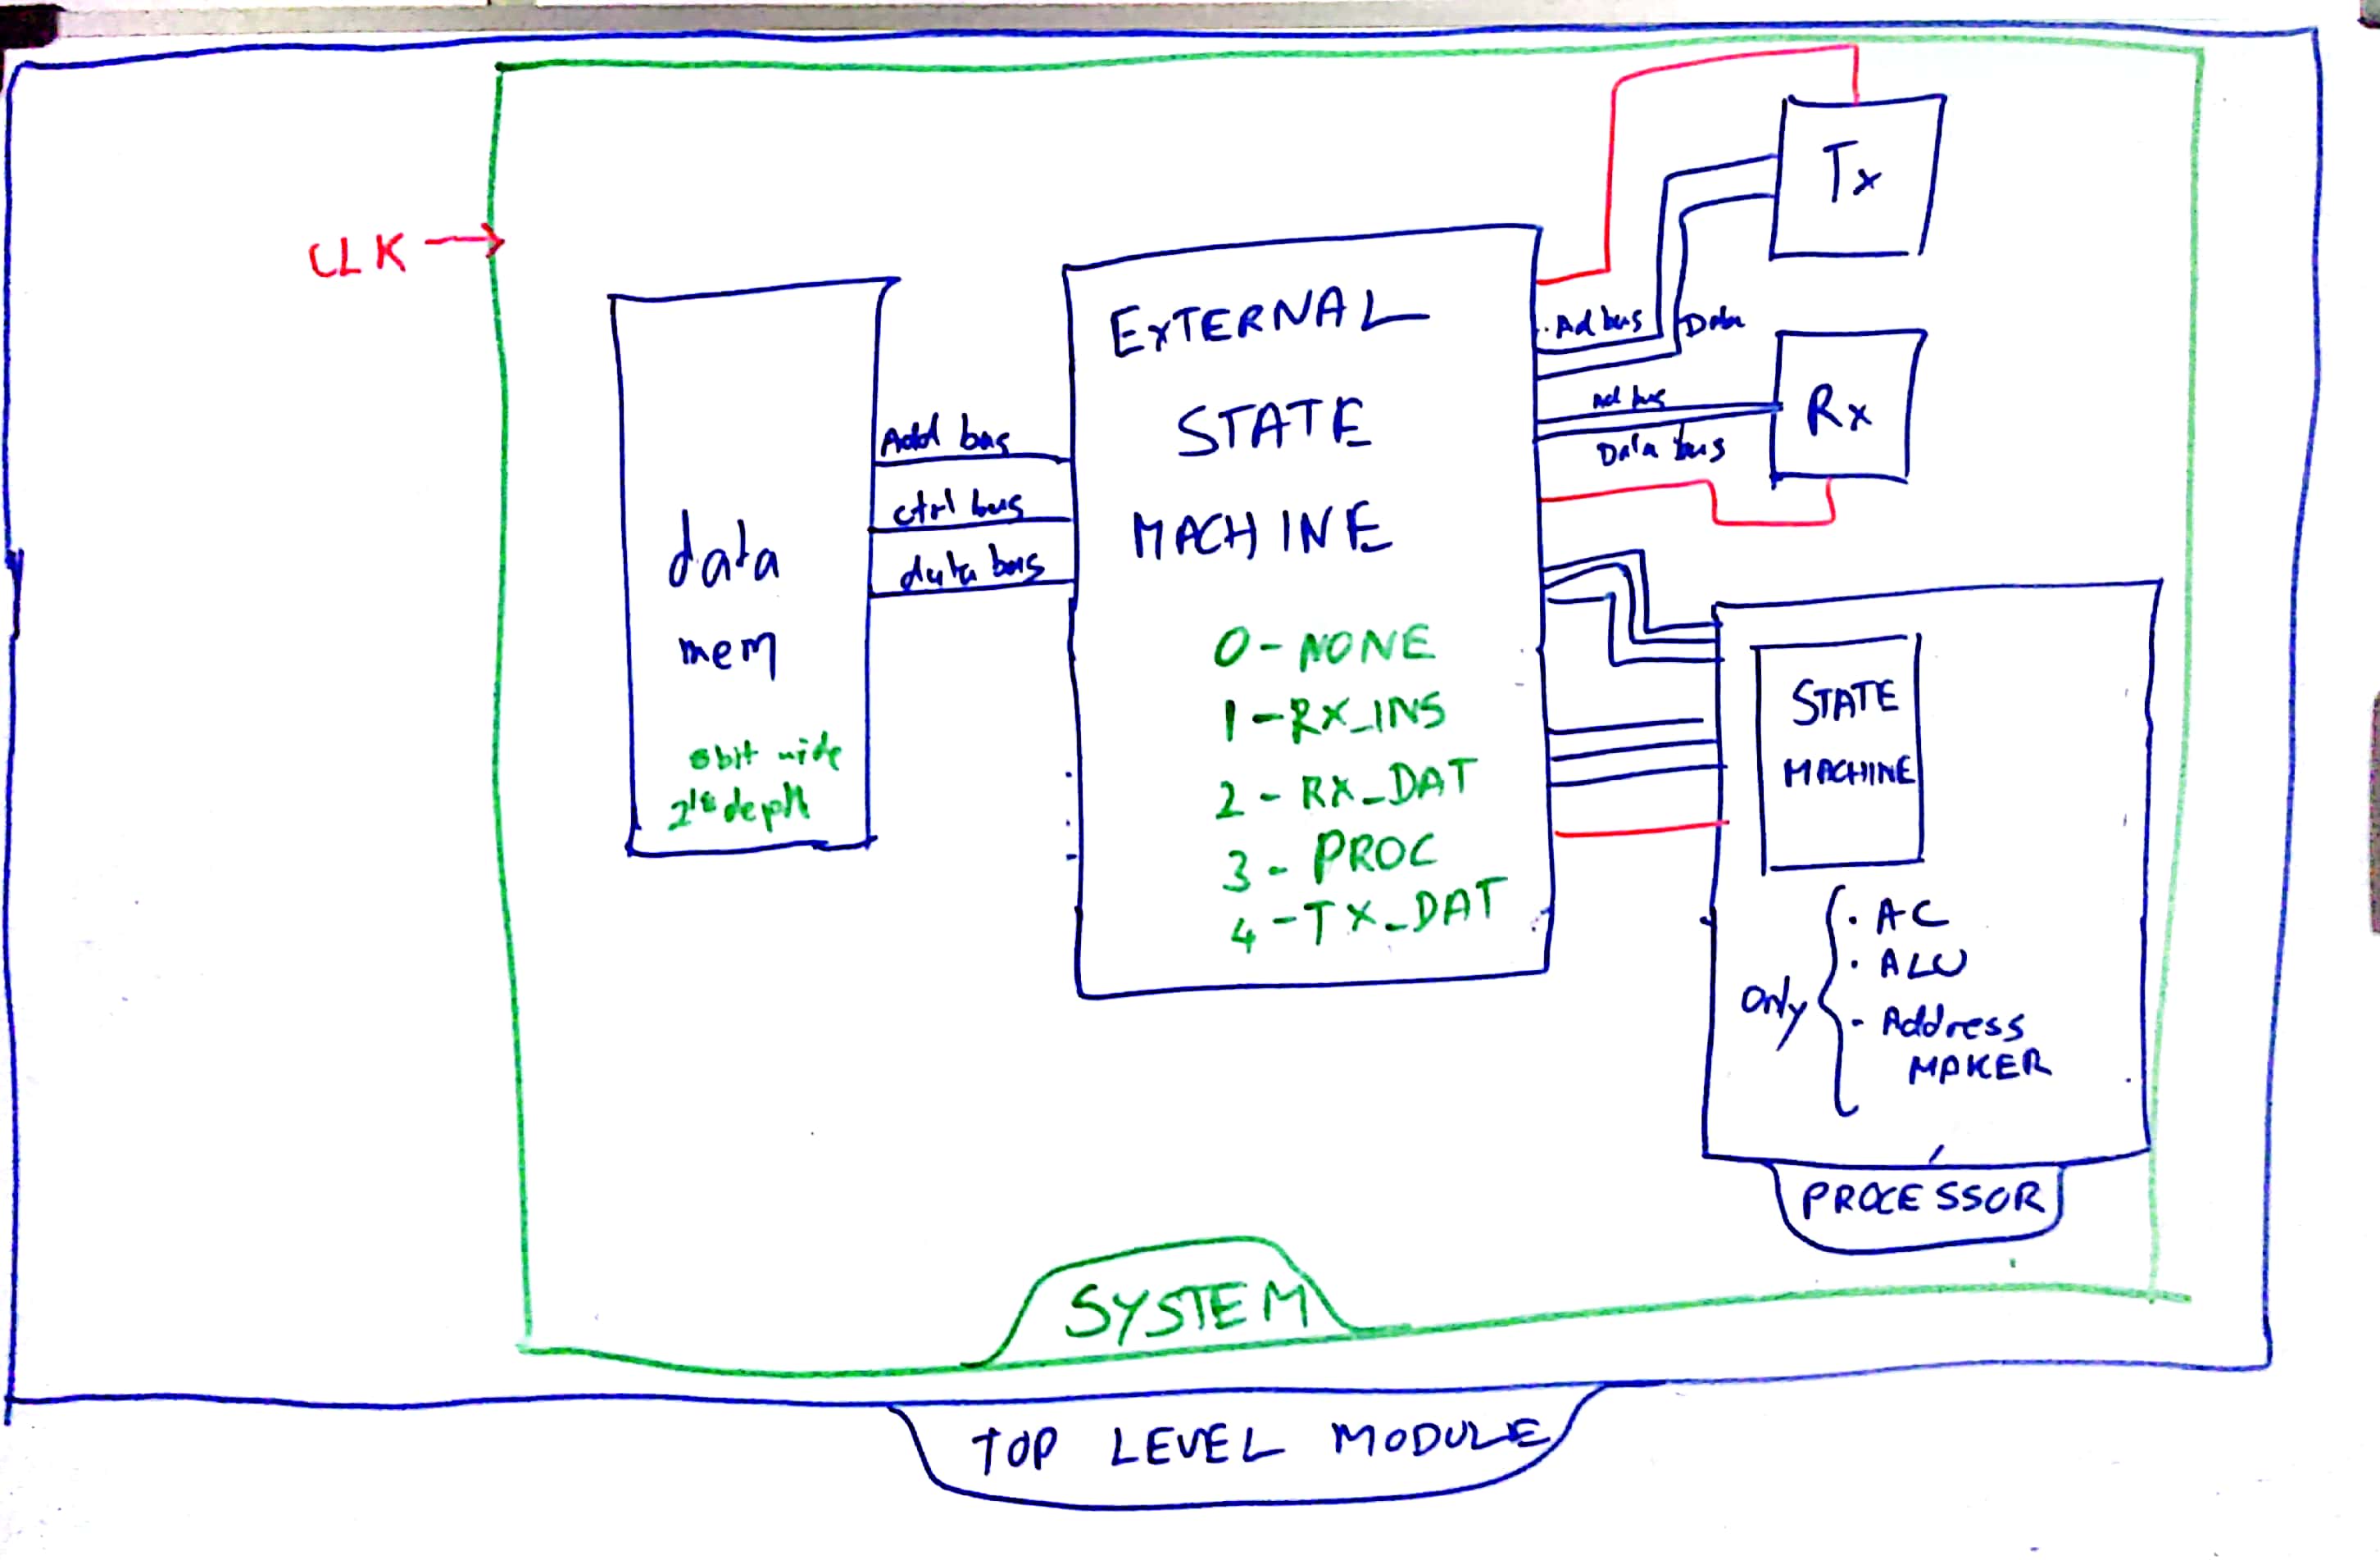 CLK
data
mem
8bit wide
depth
Add bus
ctrl bus
data bus
EXTERNAL
STATE
MACHINE
0 - NONE
1 - RX_INS
2 - RX_DAT
3 - PROC
4 - TX_DAT
Tx
Ad bus
Data
Rx
Ad bus
Data bus
STATE
MACHINE
Only
· AC
· ALU
- Address
MAKER
PROCESSOR
SYSTEM
TOP LEVEL MODULE